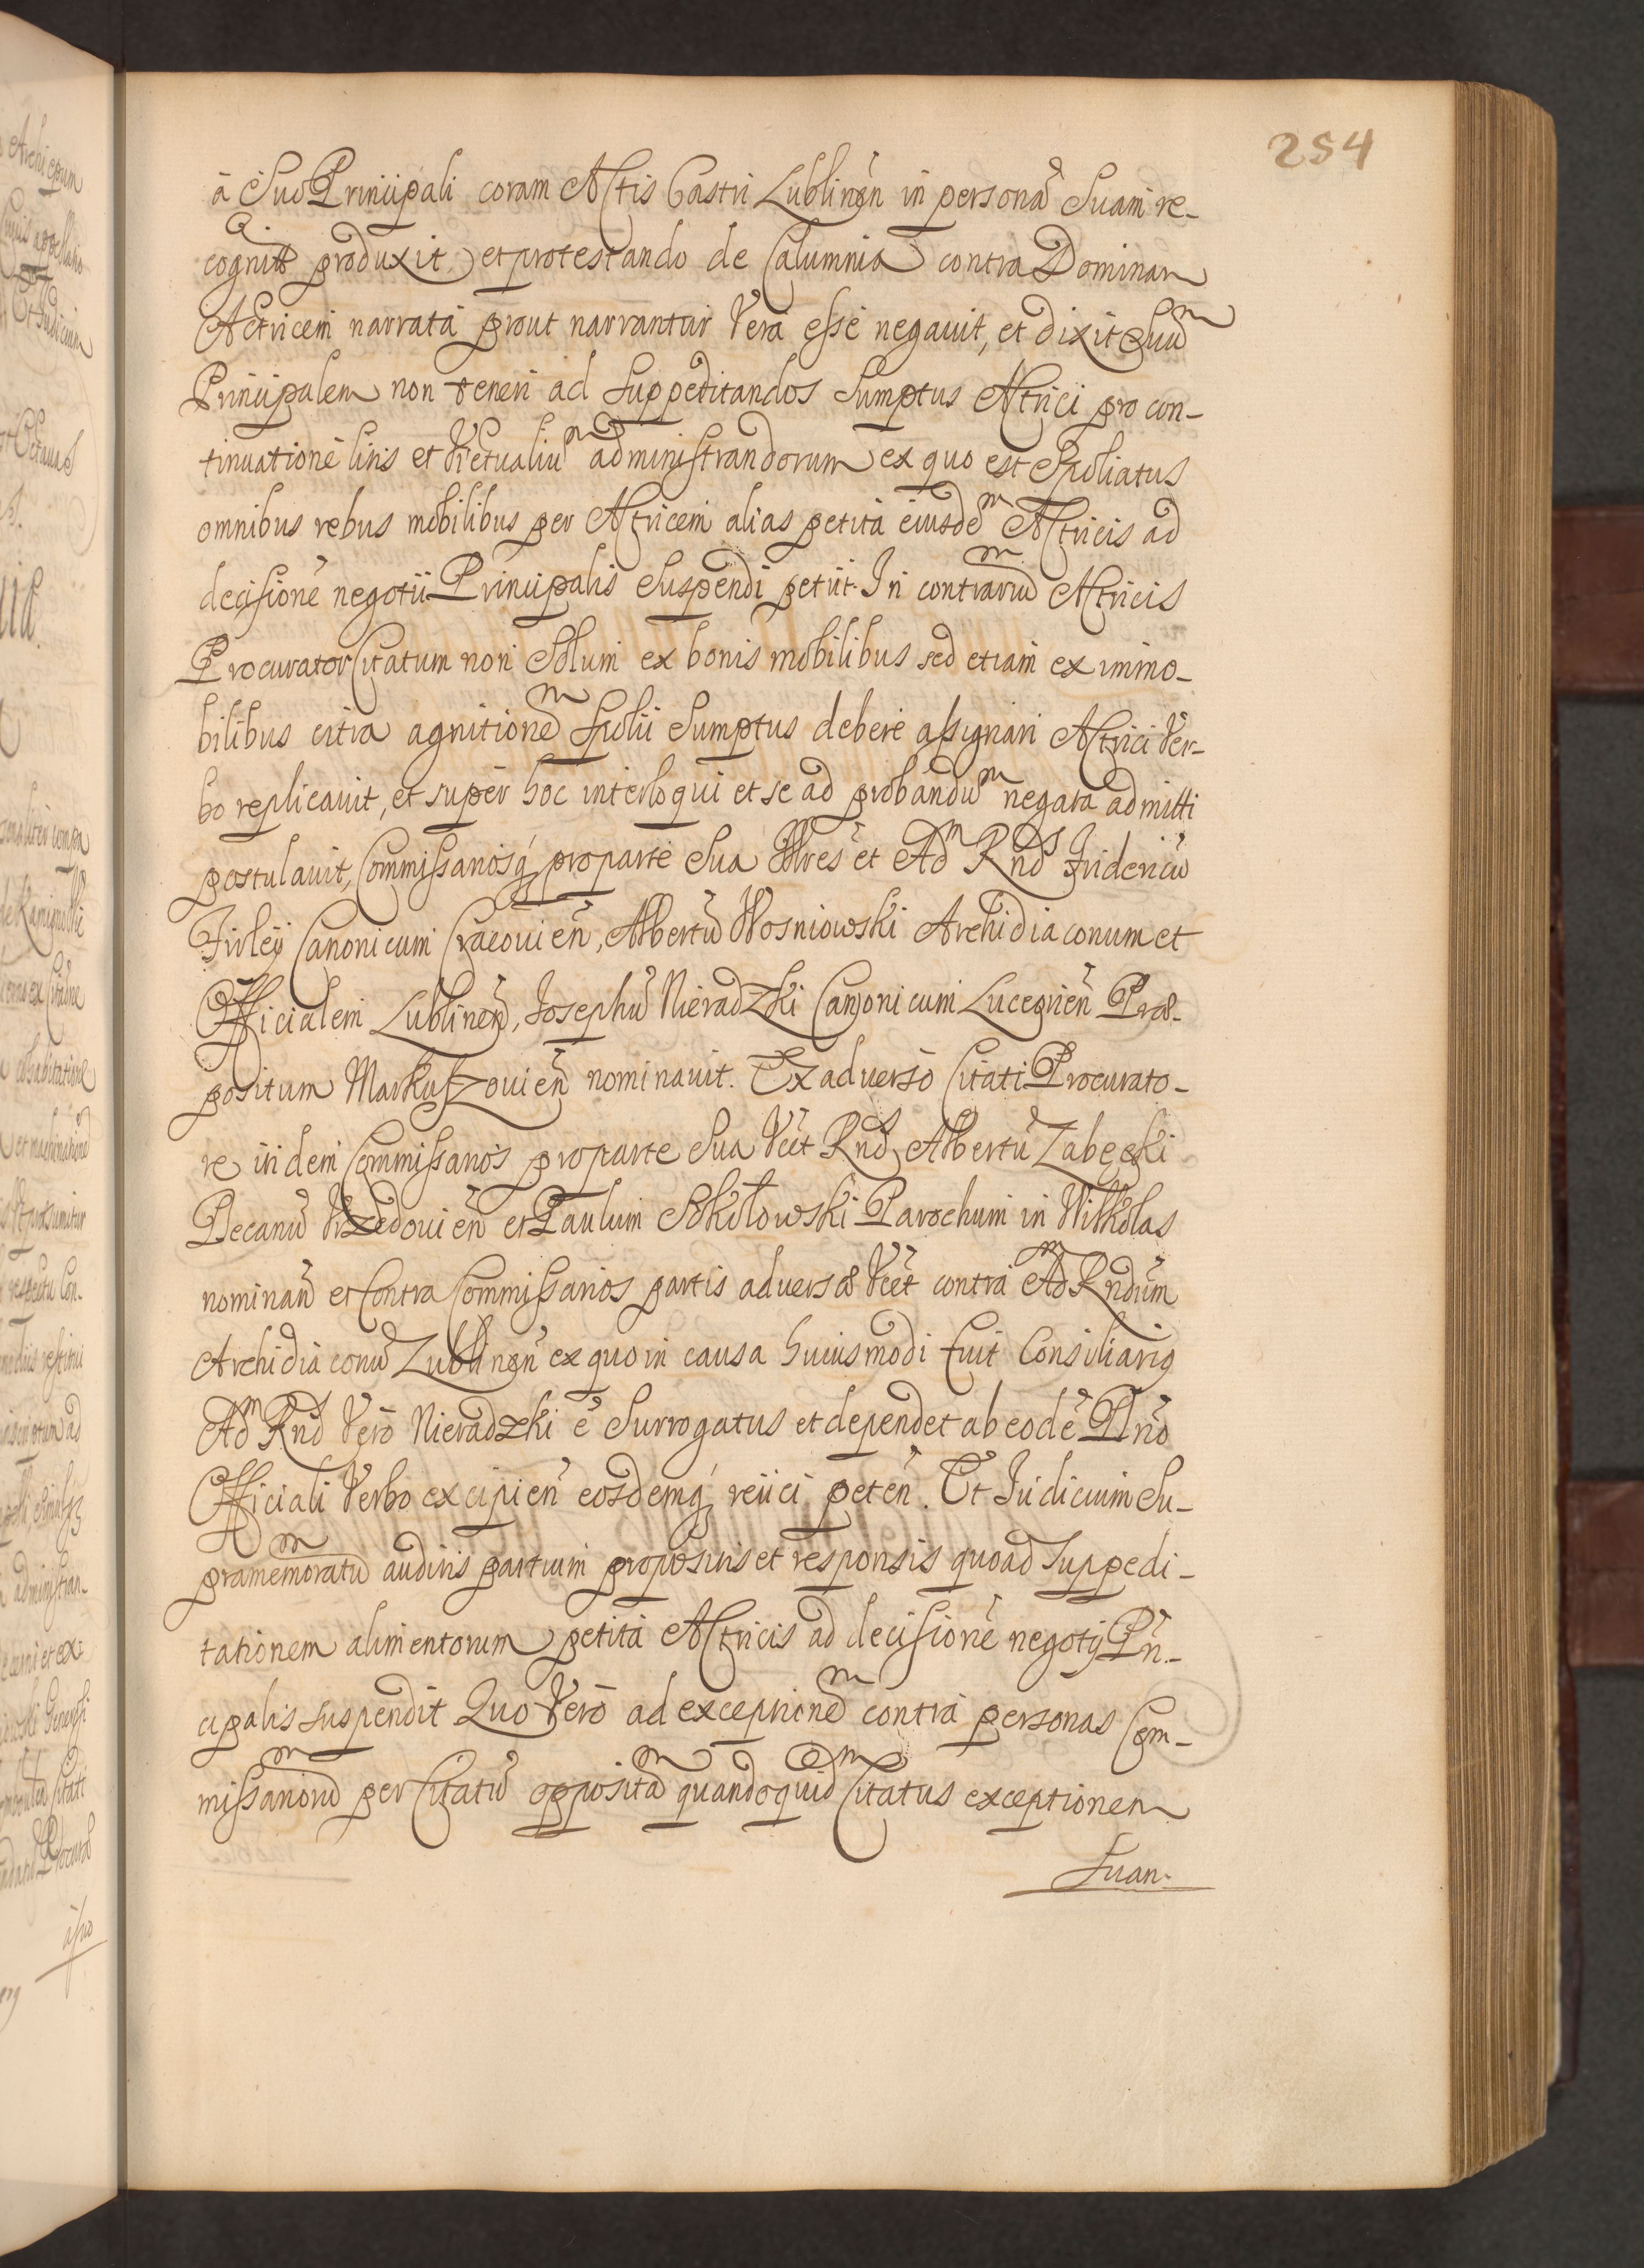 254
à Suo Principali coram Actis Castri Lublineñ in personã Suam re-
cognit̃ produxit, et protestando de Calumnia contra Dominam
Actricem narrata prout narrantur Vera esse negauit, et dixit Suũm
Principalem non teneri ad Suppeditandos Sumptus Actrici pro con-
tinuatione litis et Victualiũm administrandorum ex quo est Spoliatus
omnibus rebus mobilibus per Actricem alias petita eiusdẽm Actricis ad
decisionẽ negotii Principalis Suspendi petiit. In contrariũm Actricis
Procurator Citatum non Solum ex bonis mobilibus sed etiam ex immo-
bilibus citra agnitionẽm Spolii Sumptus debere assignari Actrici Ver-
bo replicauit, et super hoc interloqui et se ad probandũm negata admitti
postulauit, Commissariosq́ pro parte Sua Illres et Adm Rnds Fridericũ
Firleÿ Canonicum Cracouieñ, Albertũ Wosniowski Archidiaconum et
Officialem Lublineñ, Josephũ Nieradzki Canonicum Luceorieñ Præ-
positum Markuszouieñ nominauit. Ex aduerso Citati Procurato-
re iidem Commissarios pro parte Sua Vcet Rnds Albertũ Zabęcki
Decanũ Vrzedouieñ et Paulum Sokołowski Parochum in Wilkolas
nominañ et Contra Commissarios partis aduersæ Vcet contra Adm Rndum
Archidiaconũ Lublineñ ex quo in causa huiusmodi fuit Consiliarig
Adm Rnds Vero Nieradzki ẽ Surrogatus et dependet ab eodẽ Pllri Dno
Officiali Verbo excipieñ eosdemq́ reiici peteñ. Et Iudicium Su-
pramemoratũm auditis partium propositis et responsis quoad Suppedi-
tationem alimentorum petita Actricis ad decisionẽ negotij Pñ-
cipalis suspendit Quo Vero ad exceptionẽm contra personas Com-
missariorũm per Citatũ oppositãm quandoquidẽm Citatus exceptionem
Suam.